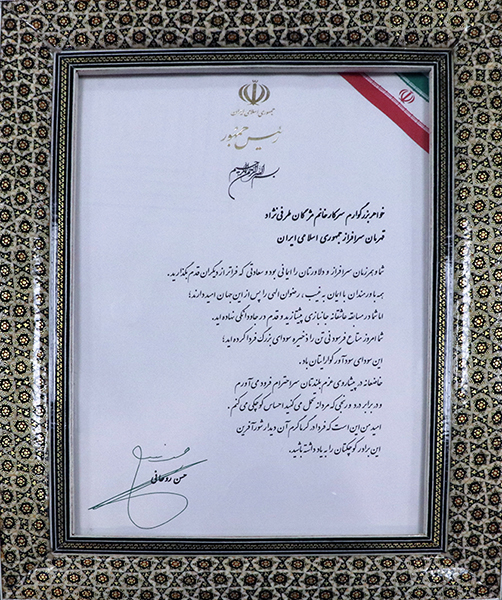 جمهوری اسلامی ایران
رئیس جمهور
بسم الله الرحمن الرحیم
خواهر بزرگوارم سرکار خانم مژگان طرفی نژاد
قهرمان سرافراز جمهوری اسلامی ایران
شما و همرزمان سرافراز و دلاورتان را ایمانی بود و سعادتی که فراتر از دیگران قدم بگذارید.
همه باورمندان با ایمان به غیب، رضوان الهی را پس از این جهان امید دارند؛
اما شما در مسابقه عاشقانه جانبازی پیشتازید و قدم در جاودانگی نهاده اید.
شما امروز متاع فرسودنی تن را ذخیره سودای بزرگ فردا کرده اید؛
این سودای سودآور گوارایتان باد.
خاضعانه در پیشاروی عزم بلندتان سر احترام فرود می آورم
و در برابر درد و رنجی که مردانه تحمل می کنید احساس کوچکی می کنم.
امید من این است که فردا در گرماگرم آن دیدار شورآفرین
این برادر کوچکتان را به یاد داشته باشید.
حسن روحانی